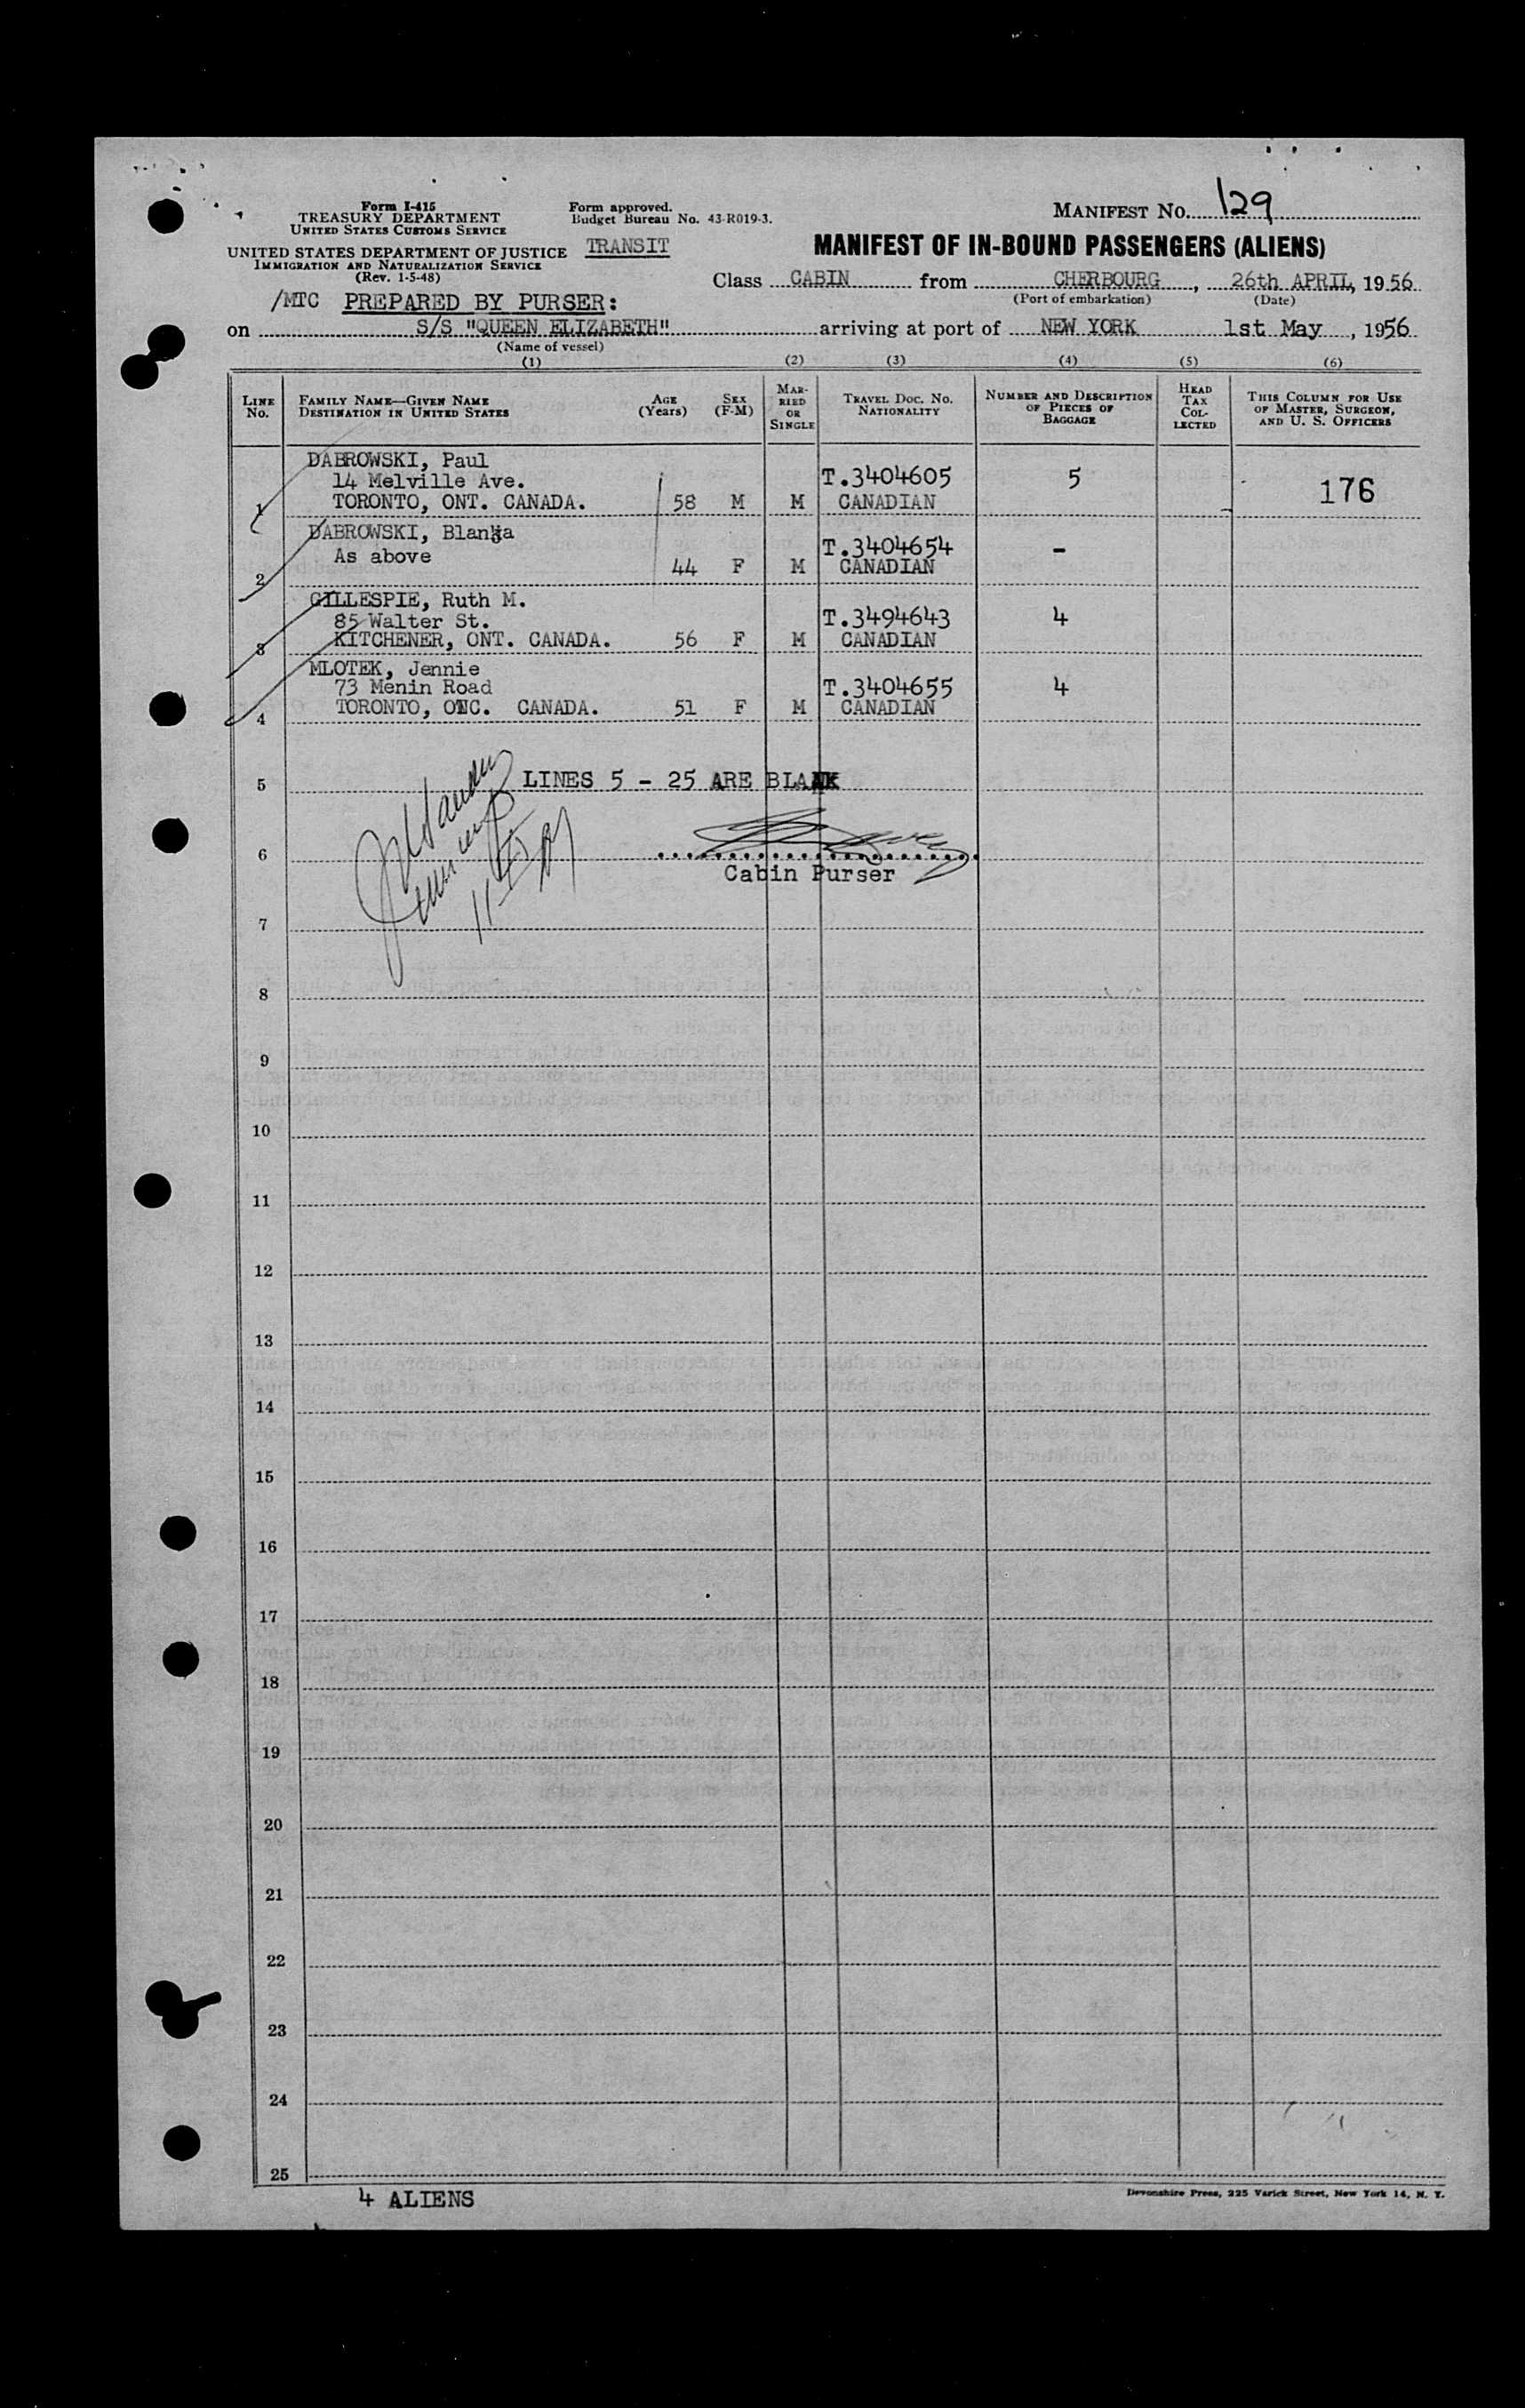 Form I-415
TREASURY DEPARTMENT
UNITED STATES CUSTOMS SERVICE
UNITED STATES DEPARTMENT OF JUSTICE
IMMIGRATION AND NATURALIZATION SERVICE
(Rev. 1-5-48)
Form approved.
Budget Bureau No. 43-R019-3.
TRANSIT
MANIFEST NO. 129
MANIFEST OF IN-BOUND PASSENGERS (ALIENS)
Class CABIN from CHERBOURG, 26th APRIL, 1956
(Port of embarkation) (Date)
/MTC PREPARED BY PURSER:
on S/S "QUEEN ELIZABETH" arriving at port of NEW YORK 1st May, 1956
(Name of vessel)
(1) (2) (3) (4) (5) (6)
LINE NO. FAMILY NAME—GIVEN NAME DESTINATION IN UNITED STATES AGE (Years) SEX (F-M) MARRIED OR SINGLE TRAVEL DOC. NO. NATIONALITY NUMBER AND DESCRIPTION OF PIECES OF BAGGAGE HEAD TAX COLLECTED THIS COLUMN FOR USE OF MASTER, SURGEON, AND U. S. OFFICERS
DABROWSKI, Paul
14 Melville Ave. T.3404605 5 176
1 TORONTO, ONT. CANADA. 58 M M CANADIAN
DABROWSKI, Blanka
As above T.3404654 -
2 44 F M CANADIAN
GILLESPIE, Ruth M.
85 Walter St. T.3494643 4
3 KITCHENER, ONT. CANADA. 56 F M CANADIAN
MLOTEK, Jennie
73 Menin Road T.3404655 4
4 TORONTO, CANADA. 51 F M CANADIAN
5 LINES 5 - 25 ARE BLANK
6
Cabin Purser
7
8
9
10
11
12
13
14
15
16
17
18
19
20
21
22
23
24
25
4 ALIENS
Devonshire Press, 225 Varick Street, New York 14, N. Y.